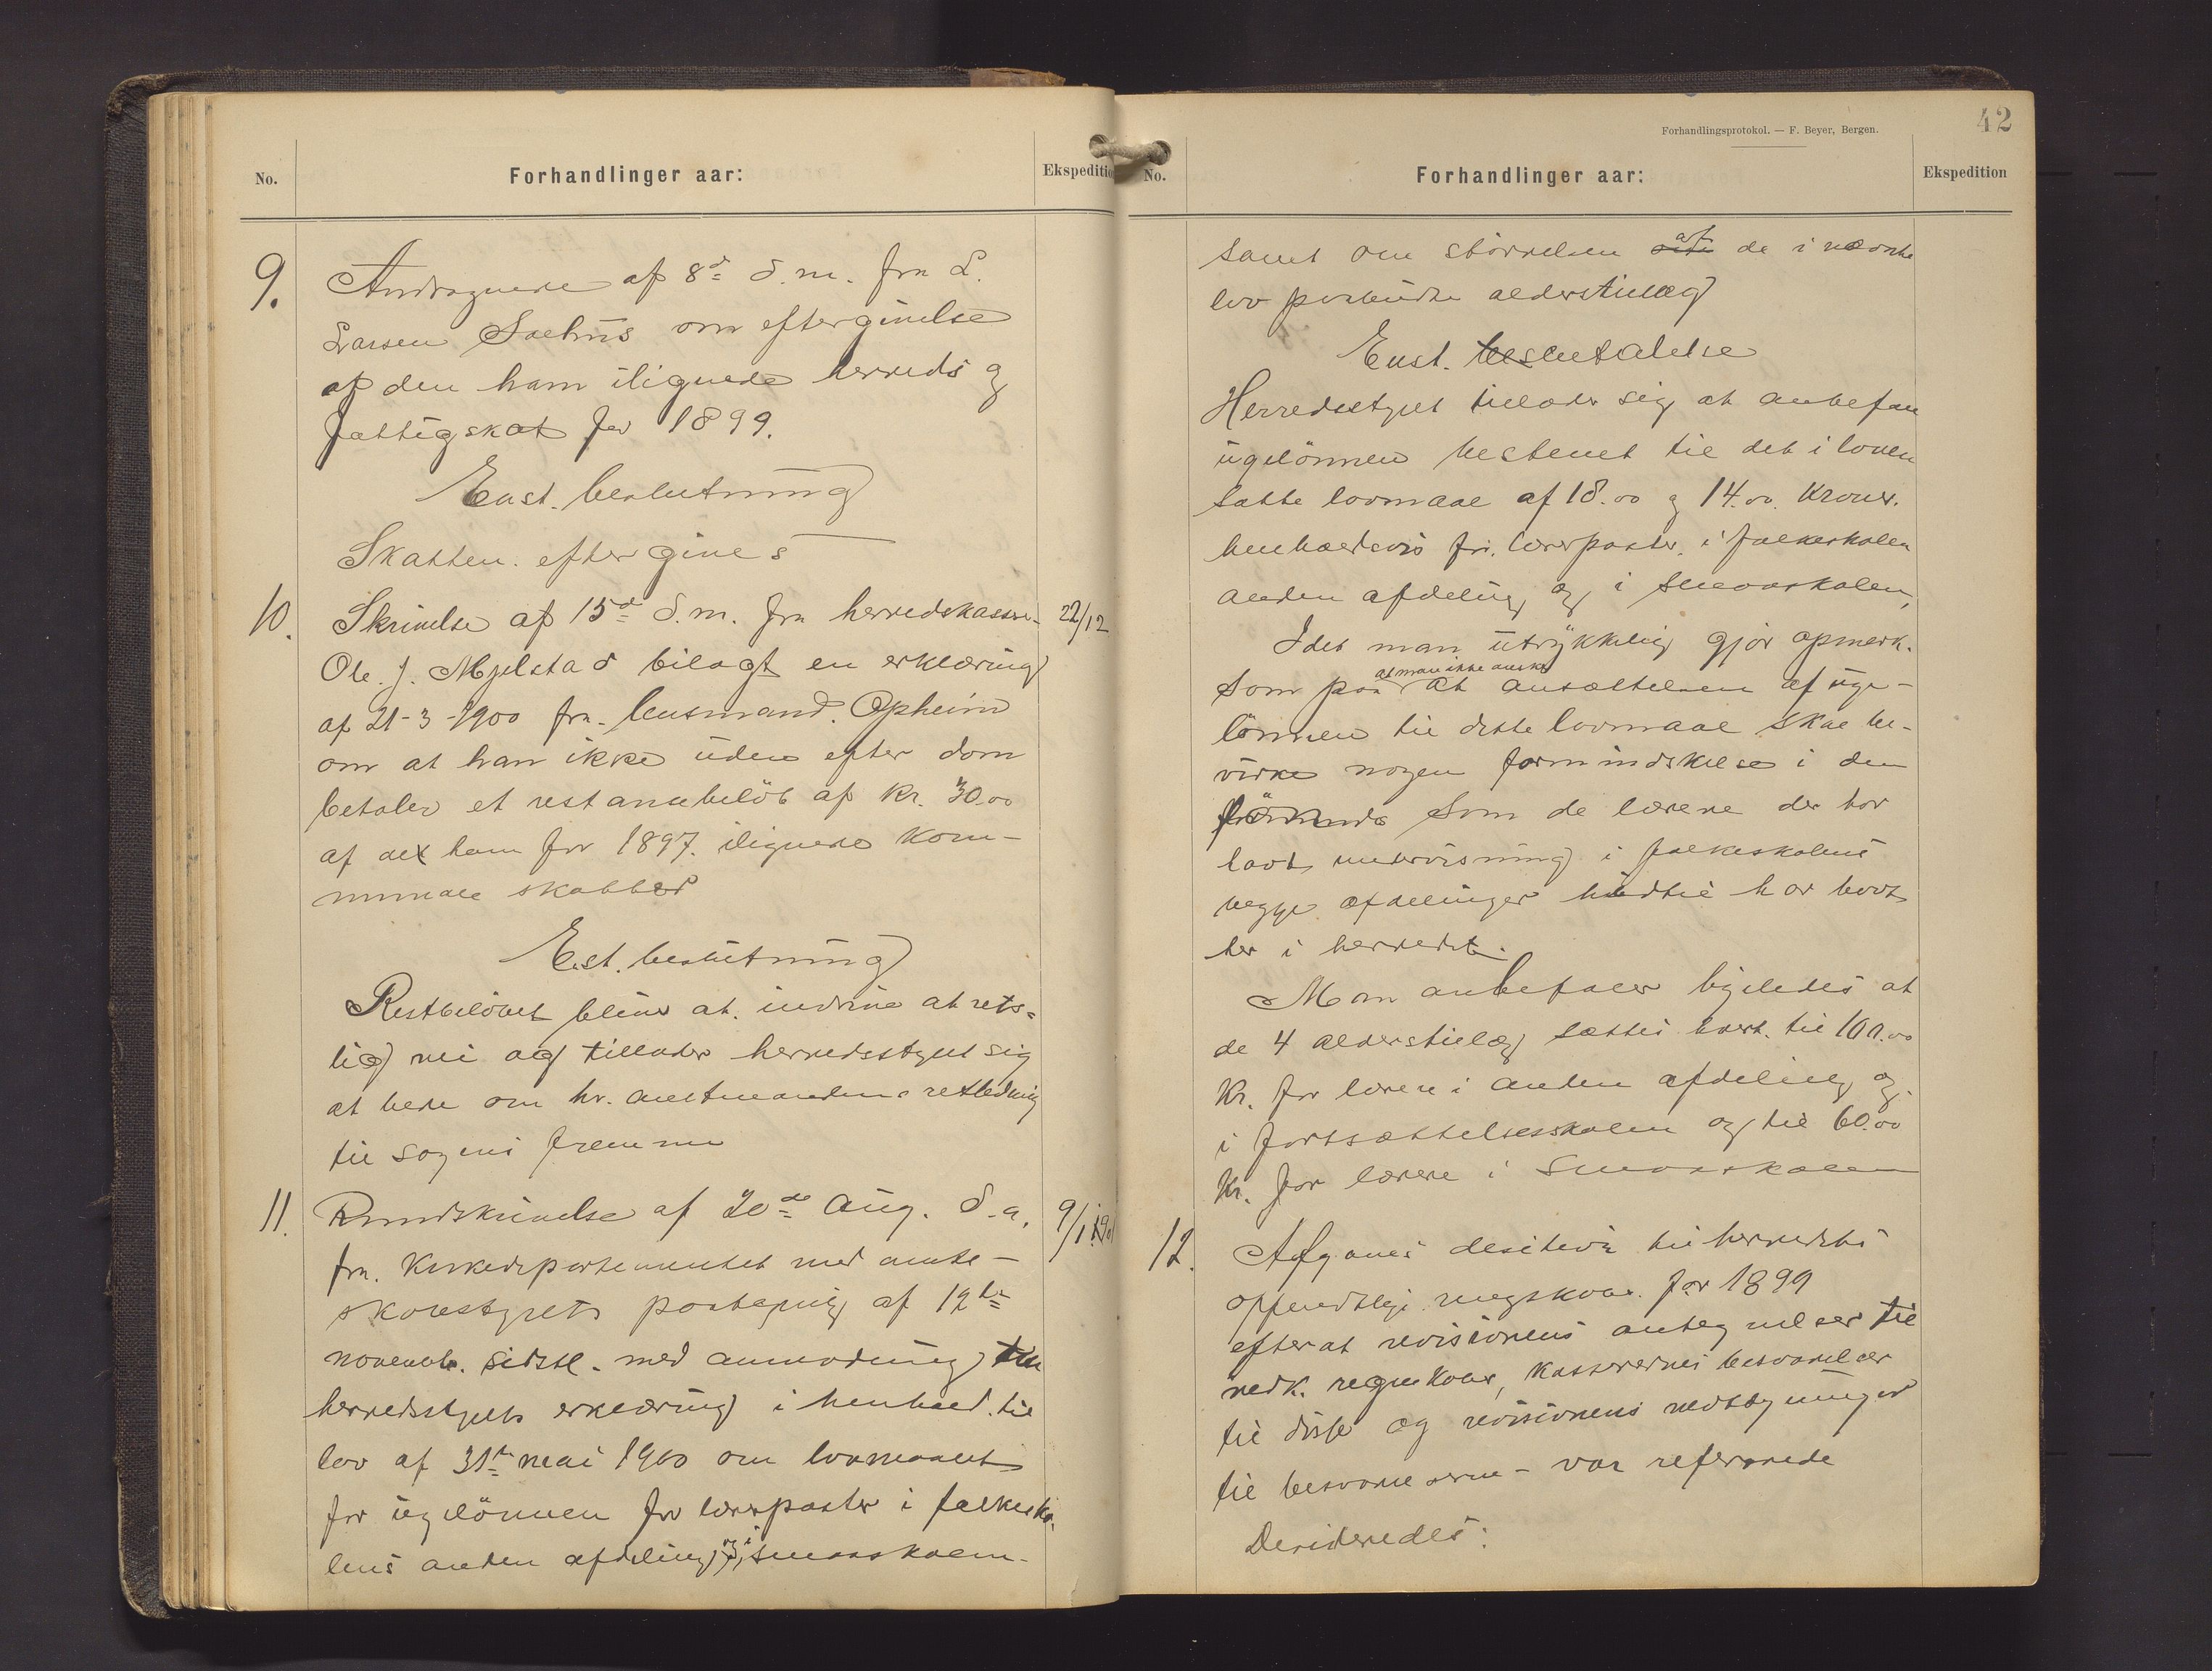 No.
Forhandlinger aar:
Ekspeditio
9.
Andragende af 8d d.m. fra L.
Larsen Saehus om eftergivelse
af den ham ilignede herreds og
fattigskat for 1899.
Enst. beslutning
Skatten eftergives
10.
Skrivelse af 15d d.m. fra herredskasse-
22/12
Ole. J. Mjelstad bilagt en erklæring
af 21-3-1900 fra lensmand Opheim
om at han ikke uden efter dom
betaler et restancebeløb af kr. 30.00
af det ham for 1897 ilignede kom-
munale skatter
Enst. beslutning
Restbeløbet bliver at inddrive ad rets-
lig vei og tillader herredsstyret sig
at bede om hr. amtmandens retledning
til sagens fremme
11.
Rundskrivelse af 20de Aug. d.a.
9/1 1901
fra Kirkedepartementet med amts-
skolestyrets paategning af 12te
novemb. sidstl. med anmodning om
herredsstyrets erklæring i henhold til
lov af 31te mai 1900 om lovmaalet
for ugelönnen for lærerposter i folkesko-
lens anden afdeling og i smaaskolen
Forhandlingsprotokol. — F. Beyer, Bergen.
42
No.
Forhandlinger aar:
Ekspedition
samt om størrelsen af de i nævnte
lov paabudte alderstillæg
Enst. beslutalelse
Herredsstyret tillader sig at anbefale
ugelönnen bestemt til det i loven
satte lovmaal af 18.00 og 14.00 Kroner
henholdsvis for lærerposter i folkeskolen
anden afdeling og i smaaskolen,
Idet man utrykkelig gjør opmerk-
som paa at man ikke ønsker at ansættelsen af uge-
lönnen til dette lovmaal skal be-
virke nogen formindskelse i den
som de lærere der har
havt undervisning i folkeskolens
begge afdelinger hidtil har havt
her i herredet.
Man anbefaler ligeledes at
de 4 alderstillæg sættes hvert til 100.00
Kr. for lærere i anden afdeling og
i fortsættelsesskolen og til 60.00
Kr. for lærere i Smaaskolen
12.
Afgaves decision til herredets
offentlige regnskaber for 1899
efterat revisionens antegnelser til
nedk. regnskaber, kassererens besvarelser
til disse og revisionens nedtegninger
til besvarelserne - var refererede
Desideredes: